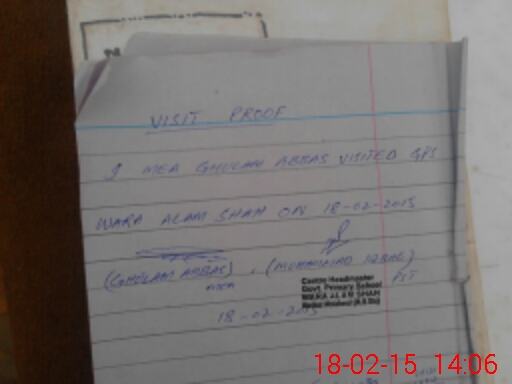 VISIT PROOF
I MEA GHULAM ABBAS VISITED GPS
WARA ALAM SHAH ON 18-02-2015
(GHULAM ABBAS) , (MUHAMMAD IQBAL)
MEA PST
Centre Headmaster
Govt. Primary School
WARA ALAM SHAH
18-02-2015
18-02-15 14:06